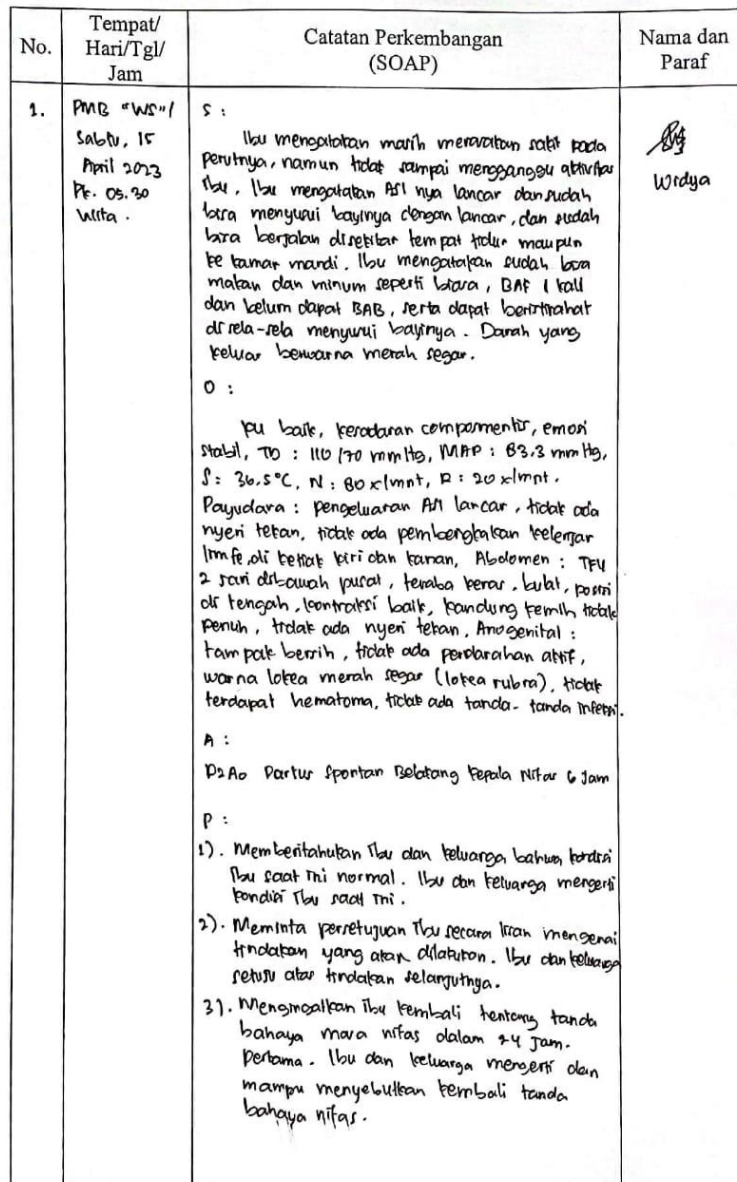 No.
Tempat/
Hari/Tgl/
Jam
Catatan Perkembangan
(SOAP)
Nama dan
Paraf
1.
PMB "WS"/
Sabtu, 15
April 2023
Pk. 05.30
Wita.
S :
Ibu mengatakan masih merasakan sakit pada
perutnya, namun tidak sampai mengganggu aktivitas
ibu, Ibu mengatakan ASI nya lancar dan sudah
bisa menyusui bayinya dengan lancar, dan sudah
bisa berjalan disekitar tempat tidur maupun
ke kamar mandi. Ibu mengatakan sudah bisa
makan dan minum seperti biasa, BAK 1 kali
dan belum dapat BAB, serta dapat beristirahat
di sela-sela menyusui bayinya. Darah yang
keluar berwarna merah segar.
O :
KU baik, kesadaran composmentis, emosi
stabil, TD : 110/70 mmHg, MAP : 83.3 mmHg,
S : 36.5°C, N : 80 x/mnt, R : 20 x/mnt.
Payudara : pengeluaran ASI lancar, tidak ada
nyeri tekan, tidak ada pembengkakan kelenjar
limfe, di ketiak kiri dan kanan, Abdomen : TFU
2 jari dibawah pusat, teraba keras, bulat, posisi
di tengah, kontraksi baik, kandung kemih tidak
penuh, tidak ada nyeri tekan, Anogenital :
tampak bersih, tidak ada perdarahan aktif,
warna lokea merah segar (lokea rubra), tidak
terdapat hematoma, tidak ada tanda-tanda infeksi.
A :
P2A0 Partus Spontan Belakang Kepala Nifas 6 Jam
P :
1). Memberitahukan Ibu dan keluarga bahwa kondisi
Ibu saat ini normal. Ibu dan keluarga mengerti
kondisi Ibu saat ini.
2). Meminta persetujuan Ibu secara lisan mengenai
tindakan yang akan dilakukan. Ibu dan keluarga
setuju atas tindakan selanjutnya.
3). Mengingatkan Ibu kembali tentang tanda
bahaya masa nifas dalam 24 Jam.
Pertama. Ibu dan keluarga mengerti dan
mampu menyebutkan kembali tanda
bahaya nifas.
Widya